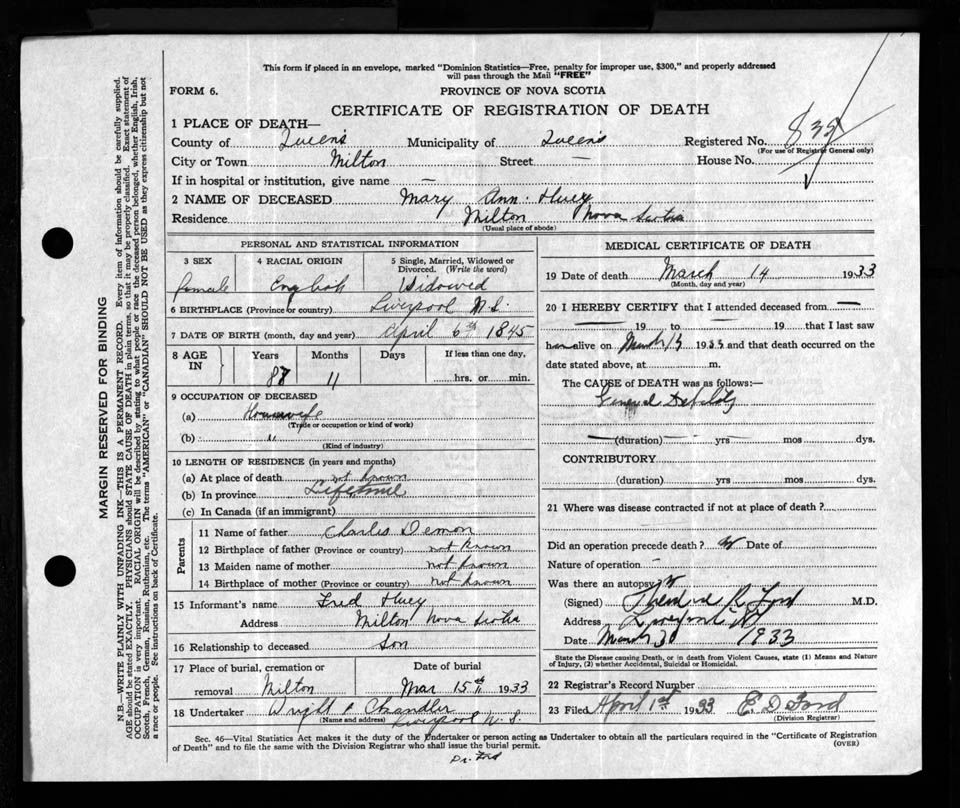 This form if placed in an envelope, marked "Dominion Statistics—Free, penalty for improper use, $300," and properly addressed
will pass through the Mail "FREE"
FORM 6.
PROVINCE OF NOVA SCOTIA
CERTIFICATE OF REGISTRATION OF DEATH
1 PLACE OF DEATH—
County of Queens Municipality of Queens Registered No. 835
(For use of Registrar General only)
City or Town Milton Street — House No.
If in hospital or institution, give name —
2 NAME OF DECEASED Mary Ann Huey
Residence Milton Nova Scotia
(Usual place of abode)
PERSONAL AND STATISTICAL INFORMATION
3 SEX 4 RACIAL ORIGIN 5 Single, Married, Widowed or
Divorced. (Write the word)
female English Widowed
6 BIRTHPLACE (Province or country) Liverpool N.S.
7 DATE OF BIRTH (month, day and year) April 6th 1845
8 AGE IN Years Months Days If less than one day,
87 11 hrs. or min.
9 OCCUPATION OF DECEASED
(a) Housewife
(Trade or occupation or kind of work)
(b) "
(Kind of industry)
10 LENGTH OF RESIDENCE (in years and months)
(a) At place of death not known
(b) In province Lifetime
(c) In Canada (if an immigrant)
Parents
11 Name of father Charles Demon
12 Birthplace of father (Province or country) not known
13 Maiden name of mother not known
14 Birthplace of mother (Province or country) not known
15 Informant's name Fred Huey
Address Milton Nova Scotia
16 Relationship to deceased Son
17 Place of burial, cremation or Date of burial
removal Milton Mar 15th 1933
18 Undertaker Wright & Chandler
(Name and address) Liverpool N.S.
MEDICAL CERTIFICATE OF DEATH
19 Date of death March 14 1933
(Month, day and year)
20 I HEREBY CERTIFY that I attended deceased from —
— 19 to 19 that I last saw
h alive on March 13 1933 and that death occurred on the
date stated above, at m.
The CAUSE of DEATH was as follows:—
General Debility
— (duration) — yrs — mos dys.
CONTRIBUTORY
(duration) yrs mos dys.
21 Where was disease contracted if not at place of death?
Did an operation precede death? Date of
Nature of operation —
Was there an autopsy
(Signed) R Ford M.D.
Address
Date March 20 1933
State the Disease causing Death, or in death from Violent Causes, state (1) Means and Nature
of Injury, (2) whether Accidental, Suicidal or Homicidal.
22 Registrar's Record Number
23 Filed April 1st 1933 E D Ford
(Division Registrar)
Sec. 46—Vital Statistics Act makes it the duty of the Undertaker or person acting as Undertaker to obtain all the particulars required in the "Certificate of Registration
of Death" and to file the same with the Division Registrar who shall issue the burial permit. (OVER)
Dr. Ford
MARGIN RESERVED FOR BINDING
N.B.—WRITE PLAINLY WITH UNFADING INK—THIS IS A PERMANENT RECORD. Every item of information should be carefully supplied.
AGE should be stated EXACTLY. PHYSICIANS should STATE CAUSE OF DEATH in plain terms, so that it may be properly classified. Exact statement of
OCCUPATION is very important. RACIAL ORIGIN will be described by stating to what people or race the deceased person belonged, whether English, Irish,
Scotch, French, German, Russian, Ruthenian, etc. The terms "AMERICAN" or "CANADIAN" SHOULD NOT BE USED as they express citizenship but not
a race or people. See instructions on back of Certificate.